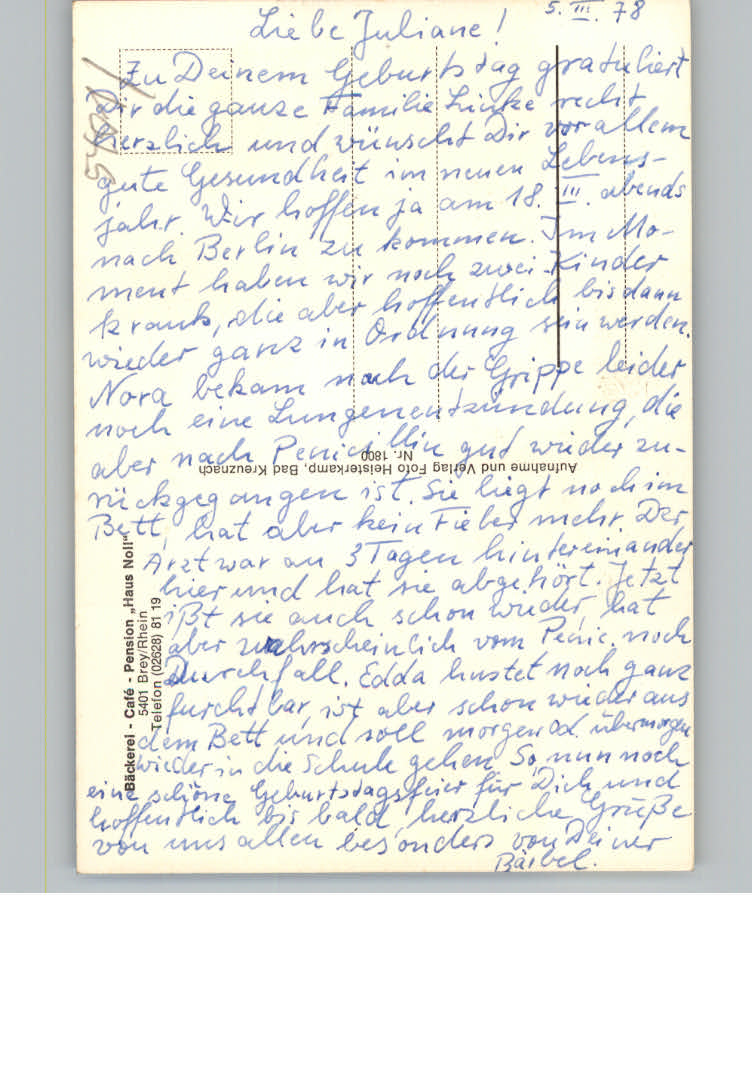 5. III. 78
Liebe Juliane!
Zu Deinem Geburtstag gratuliert
Dir die ganze Familie recht
herzlich und wünscht Dir vor allem
gute Gesundheit im neuen Lebens-
jahr. Wir hoffen ja am 18. III. abends
nach Berlin zu kommen. Im Mo-
ment haben wir noch zwei Kinder
krank, die aber hoffentlich bis dann
wieder ganz in Ordnung sein werden.
Nora bekam nach der Grippe leider
noch eine Lungenentzündung, die
aber nach Penicillin gut wieder zu-
rückgegangen ist. Sie liegt noch im
Bett, hat aber kein Fieber mehr. Der
Arzt war an 3 Tagen hintereinander
hier und hat sie abgehört. Jetzt
ißt sie auch schon wieder, hat
aber wahrscheinlich vom Penic. noch
Durchfall. Edda hustet noch ganz
furchtbar, ist aber schon wieder aus
dem Bett und soll morgen od. übermorgen
wieder in die Schule gehen. So, nun noch
eine schöne Geburtstagsfeier für Dich und
hoffentlich bis bald, herzliche Grüße
von uns allen besonders von Deiner
Bärbel.
Aufnahme und Verlag Foto Heisterkamp, Bad Kreuznach
Nr. 1800
Bäckerei - Café - Pension „Haus Noll"
5401 Brey/Rhein
Telefon (02628) 81 19